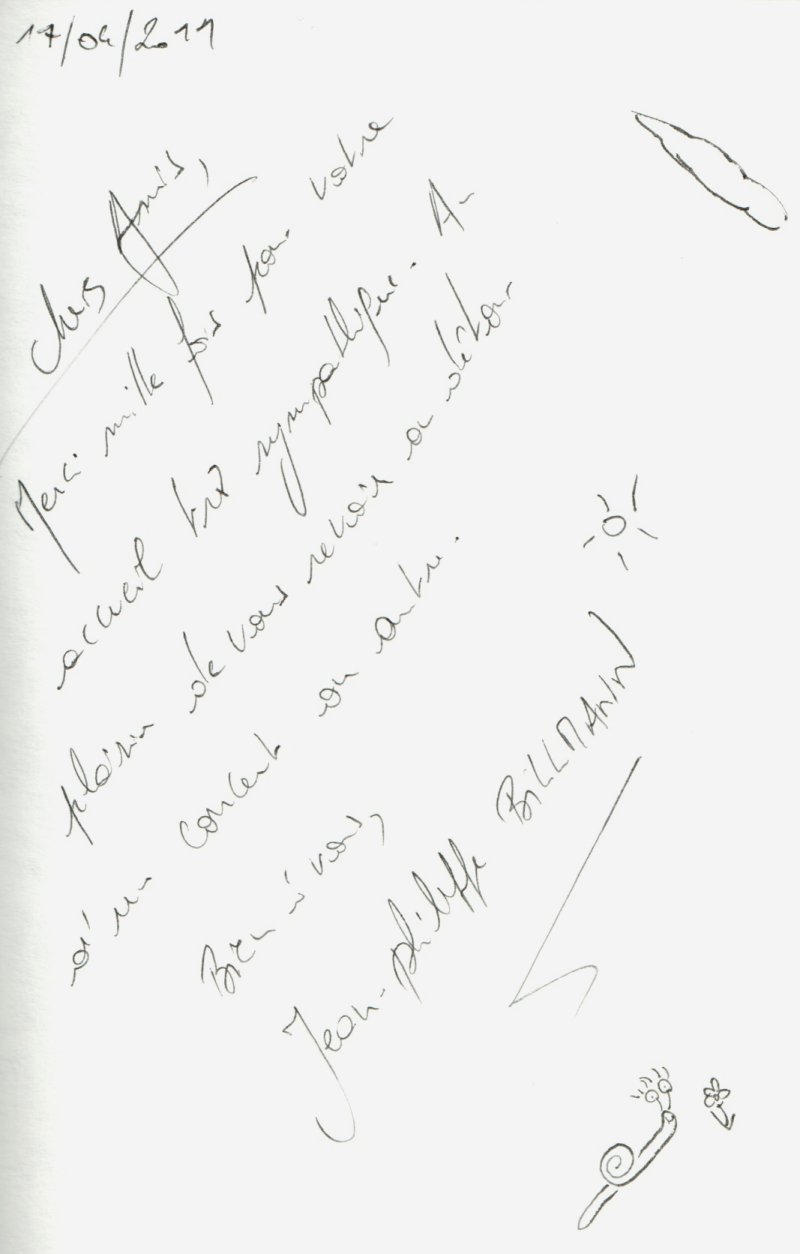 17/04/2011
Chers Amis,
Merci mille fois pour votre
accueil très sympathique. Au
plaisir de vous revoir au détour
d'un concert ou autre.
Bien à vous,
Jean-Philippe BILLMANN